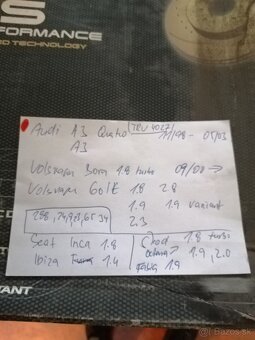 S
FORMANCE
D TECHNOLOGY
Audi A3 Quatro TRW 4027 11/98 - 05/03
A3
Volkswagen Bora 1.8 turbo 09/00 →
Golf 1.8 2.8
1.9 1.9 variant
2.3
288
Seat Inca 1.8
Ibiza 1.4
1.8 turbo
Octavia 1.9, 2.0
Fabia 1.9
TANT
Bazos.sk